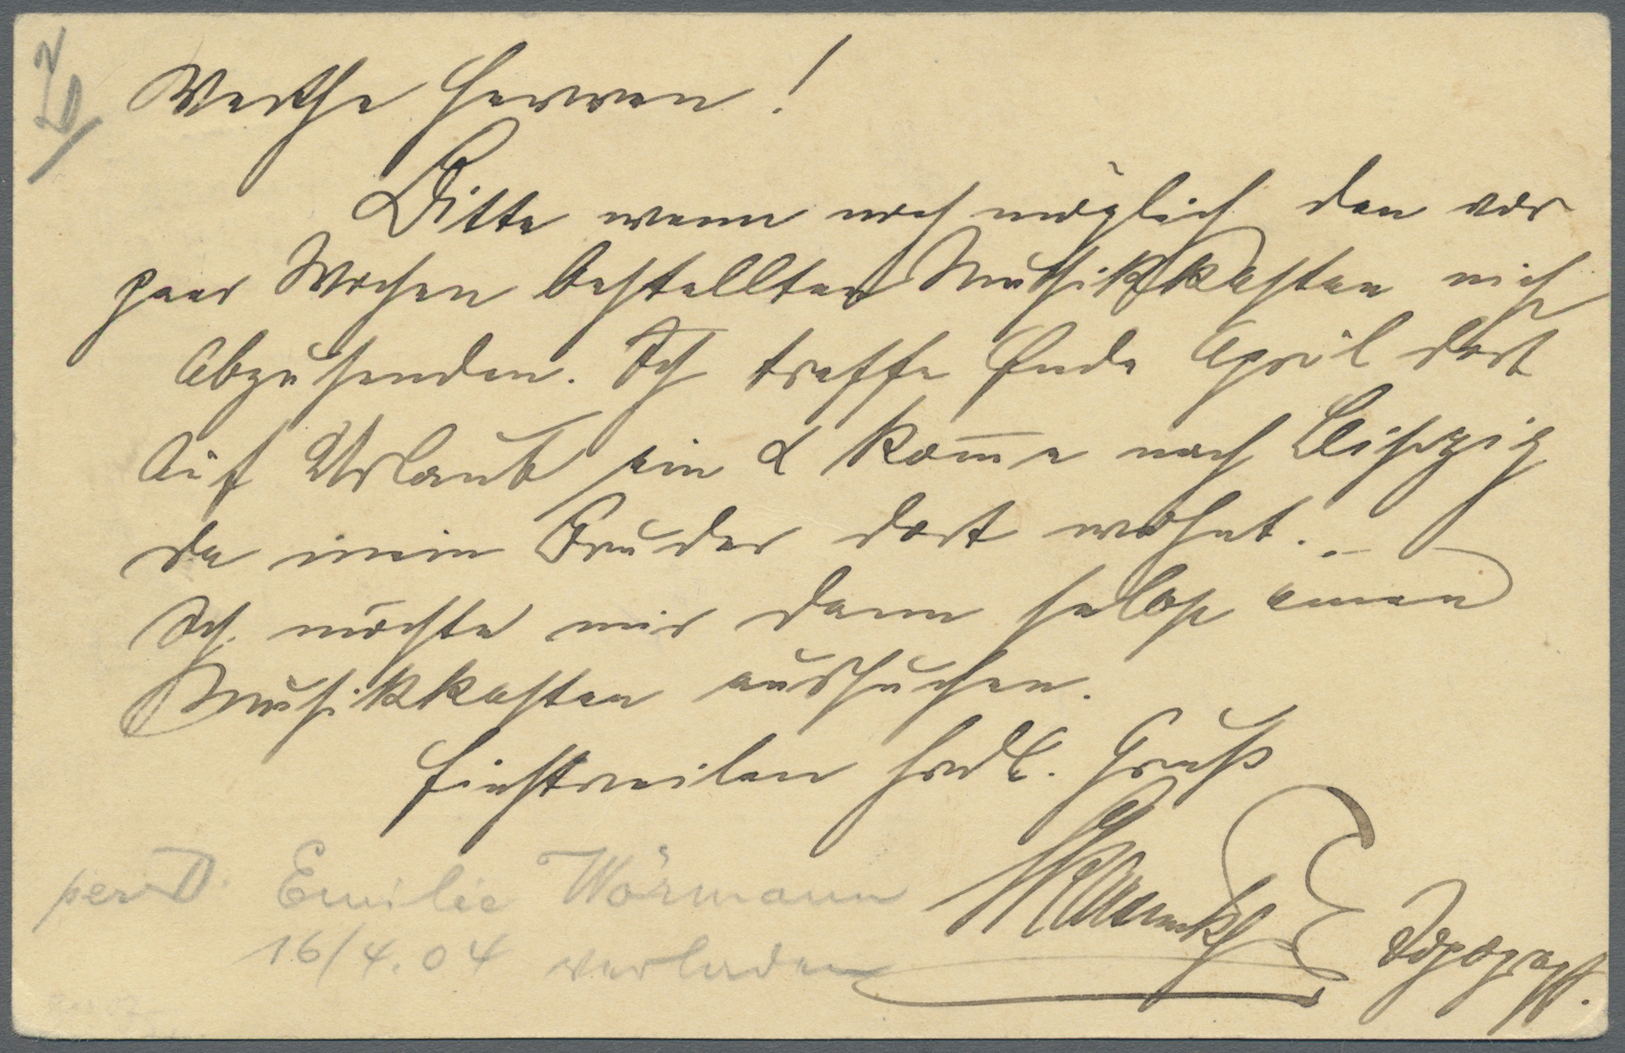 Werthe Herren!
Bitte wenn noch möglich den vor
paar Wochen bestellten Musikkasten nicht
abzusenden. Ich treffe Ende April dort
auf Urlaub ein & kom̅e nach Leipzig
da mein Bruder dort wohnt. –
Ich möchte mir dann selbst einen
Musikkasten aussuchen.
Einstweilen frdl. Gruß
Topograph.
per D. Emilie Wörmann
16/4.04 verladen